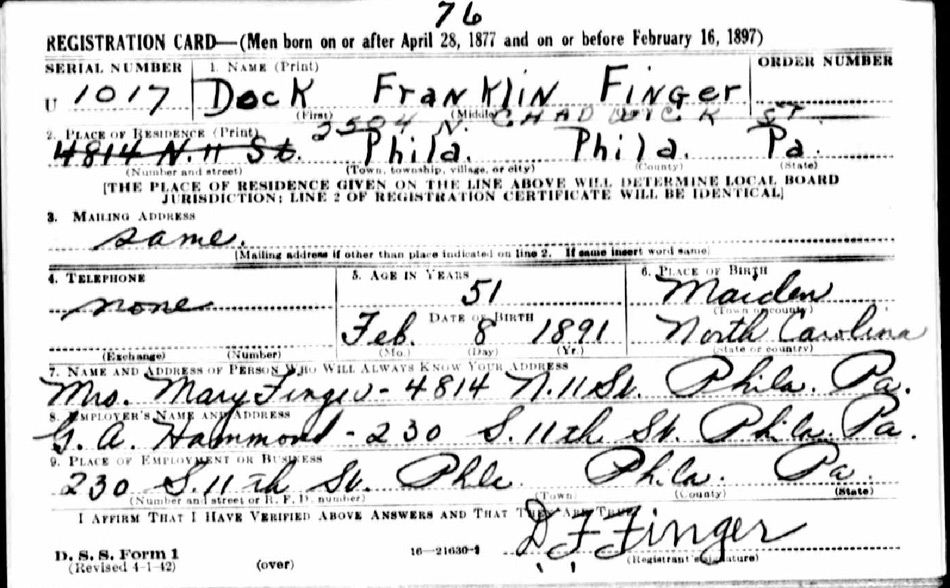 76
REGISTRATION CARD—(Men born on or after April 28, 1877 and on or before February 16, 1897)
SERIAL NUMBER 1. NAME (Print) ORDER NUMBER
U 1017 Dock Franklin Finger
(First) (Middle)
3504 N. CHADWICK ST.
2. PLACE OF RESIDENCE (Print)
4814 N. 11 St. Phila. Phila. Pa.
(Number and street) (Town, township, village, or city) (County) (State)
[THE PLACE OF RESIDENCE GIVEN ON THE LINE ABOVE WILL DETERMINE LOCAL BOARD
JURISDICTION; LINE 2 OF REGISTRATION CERTIFICATE WILL BE IDENTICAL]
3. MAILING ADDRESS
same.
[Mailing address if other than place indicated on line 2. If same insert word same]
4. TELEPHONE 5. AGE IN YEARS 6. PLACE OF BIRTH
none 51 Maiden
DATE OF BIRTH (Town or county)
Feb. 8 1891 North Carolina
(Exchange) (Number) (Mo.) (Day) (Yr.) (State or country)
7. NAME AND ADDRESS OF PERSON WHO WILL ALWAYS KNOW YOUR ADDRESS
Mrs. Mary Finger - 4814 N. 11 St. Phila. Pa.
8. EMPLOYER'S NAME AND ADDRESS
G. A. Hammond - 230 S. 11th St. Phila. Pa.
9. PLACE OF EMPLOYMENT OR BUSINESS
230 S. 11th St. Phila Phila. Pa.
(Number and street or R. F. D. number) (Town) (County) (State)
I AFFIRM THAT I HAVE VERIFIED ABOVE ANSWERS AND THAT THEY ARE TRUE.
D. F. Finger
D. S. S. Form 1 16—21630-1 (Registrant's signature)
(Revised 4-1-42) (over)